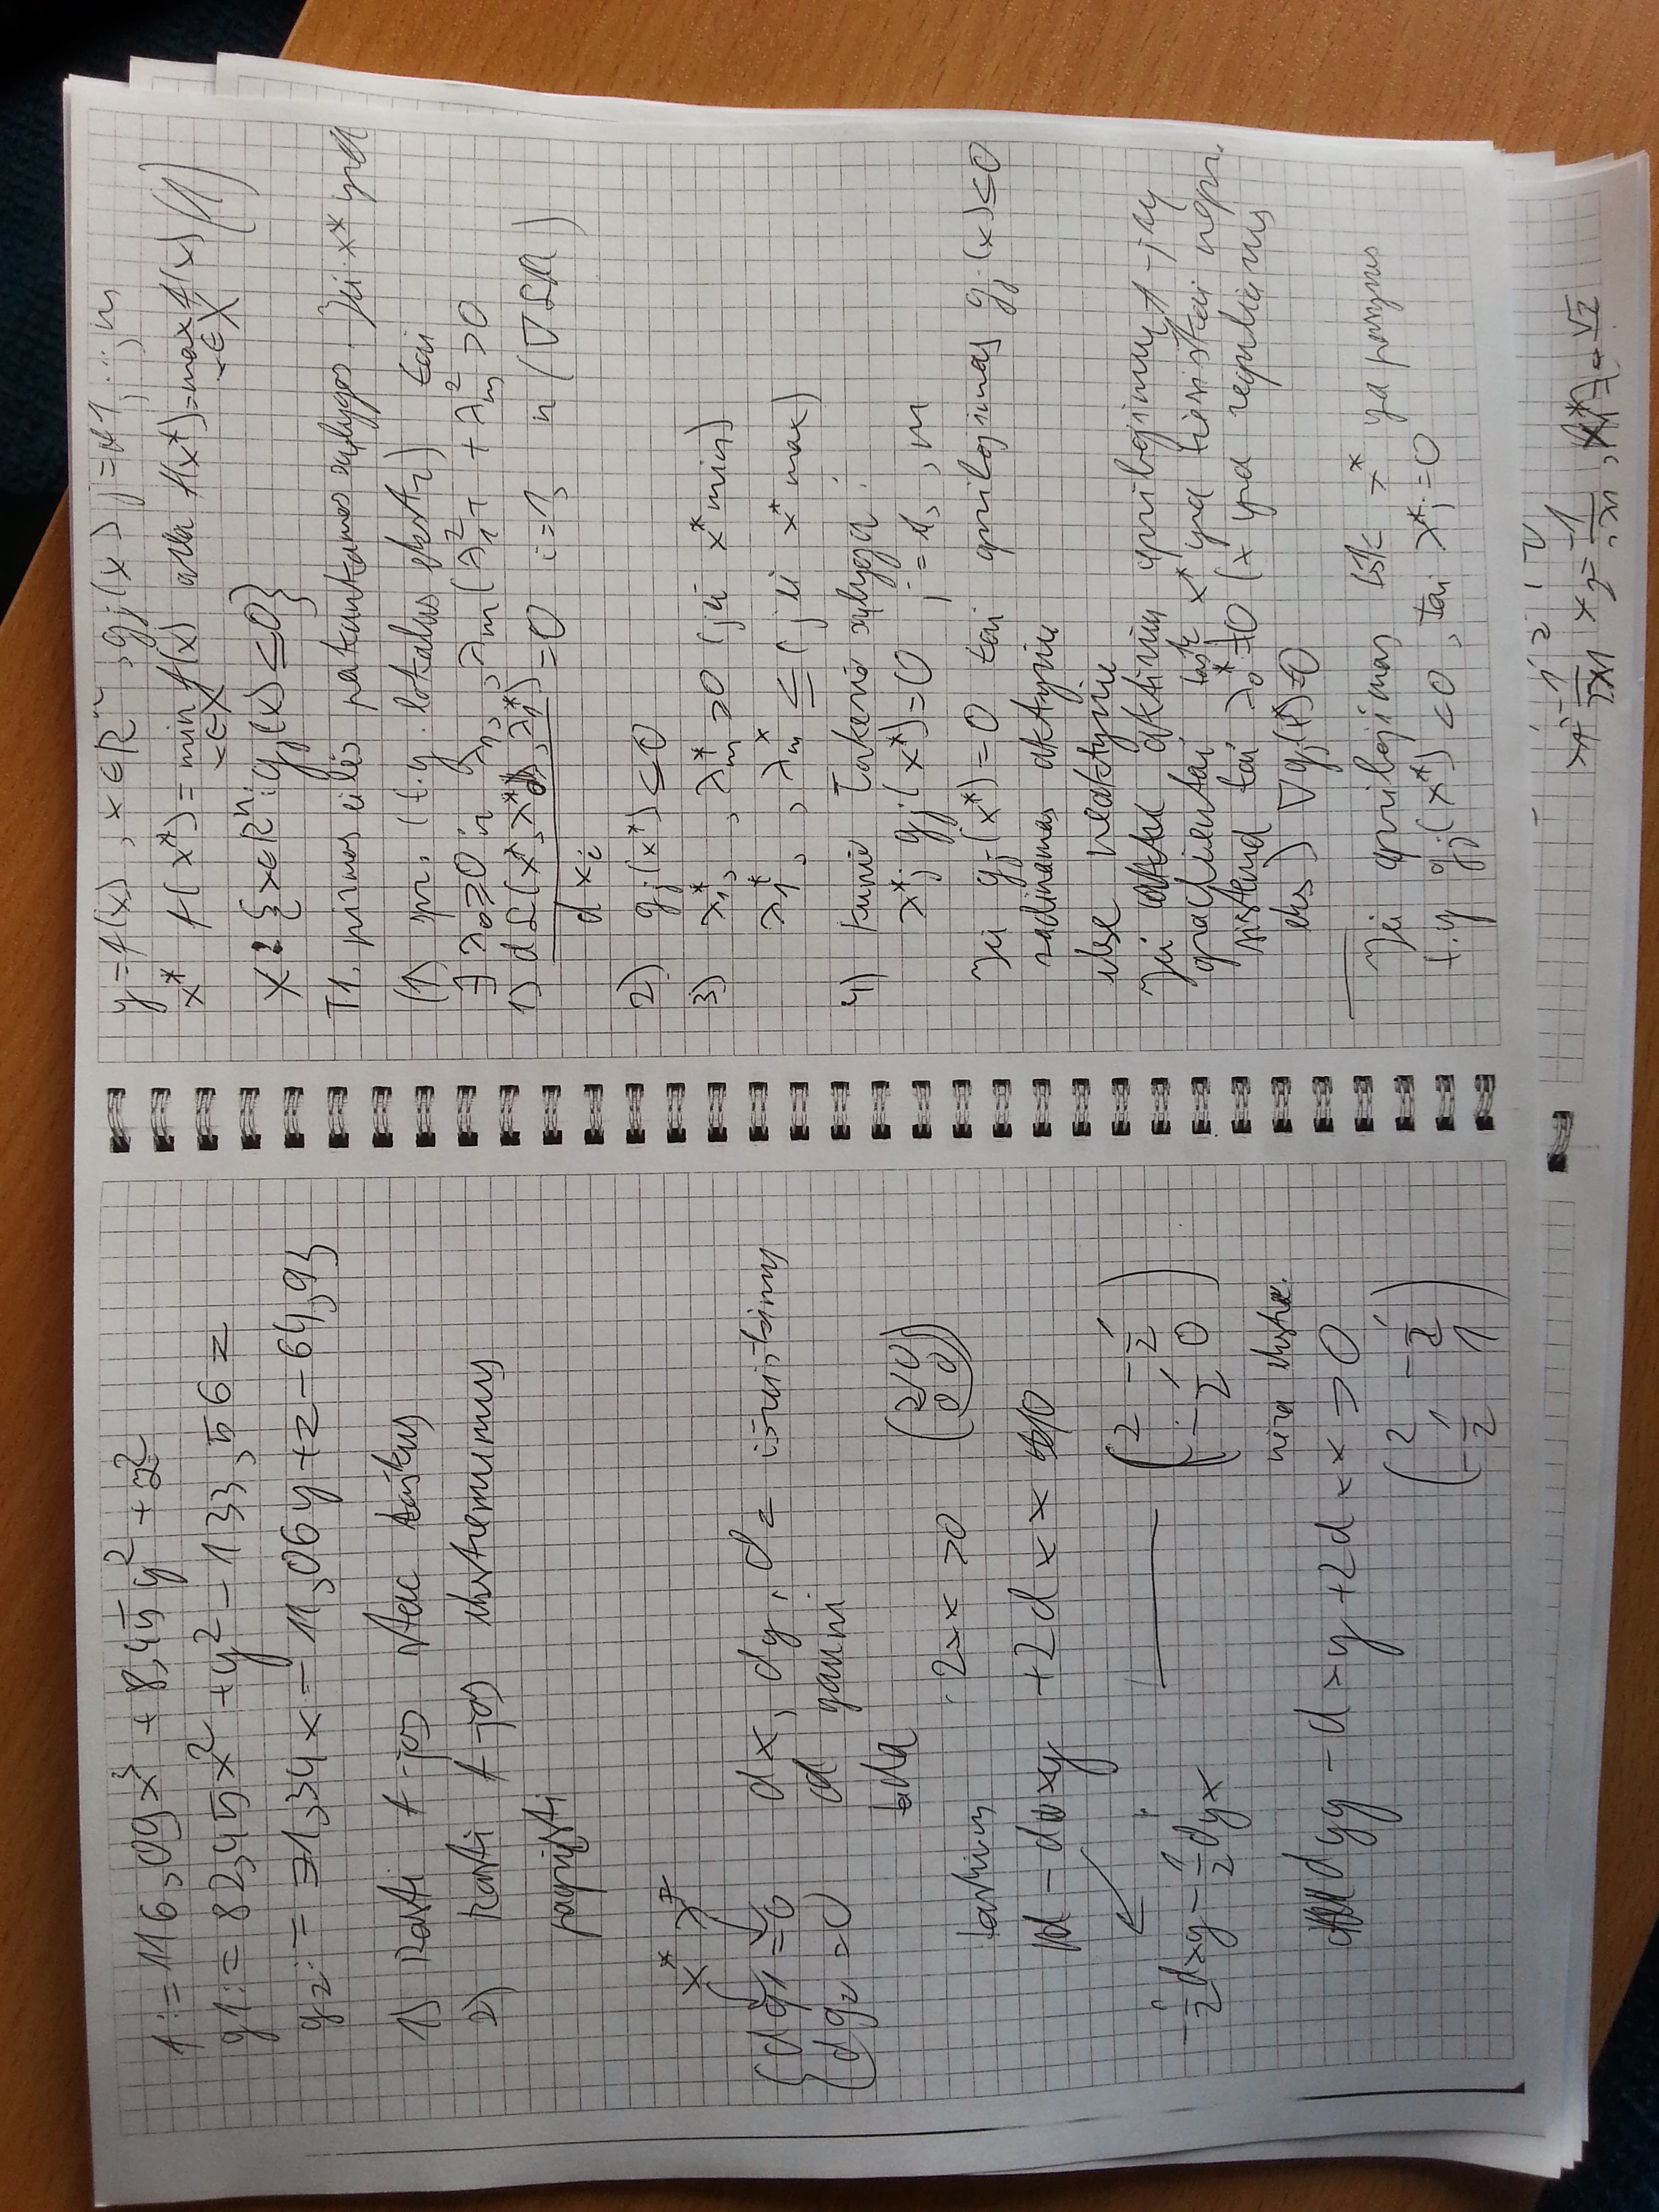 f := 116,09x³ + 8,45y² + z²
g1 := 82,45x² + y² - 133,56z
g2 := 71,34x - 11,06y + z - 64,93
1) Rasti f-jos stac taškus
2) Rasti f-jos ekstremumus
pagrįsti
x* λ*
dg1 = 0 dx, dy, dz išreiškimus
dg2 = 0 gauni
tada
2xx > 0 (2 0
0 0)
tarkim
- dxy + 2dxx
-1/2 dxy - 1/2 dyx
(2 -1/2
-1/2 0)
nėra ekstr.
dyy - dxy + 2dxx > 0
(2 -1/2
-1/2 1)
y = f(x), x ∈ Rⁿ, gj(x) j = 1, ..., m
x* f(x*) = min f(x) arba f(x*) = max f(x) (1)
x ∈ X x ∈ X
X : {x ∈ Rⁿ : gj(x) ≤ 0}
T1. pirmos eilės pakankamos sąlygos. Jei x* yra
(1) spr. (t.y. lokalus ekstr) tai
∃ λ0 ≥ 0 ir λ1, , λm (λ1² + + λm² > 0
1) = 0 i = 1, n
dxi
2) gj(x*) ≤ 0
3) λ1*, , λm* ≥ 0 (jei x* min)
λ1*, , λm* ≤ (jei x* max)
4) Kuno Takerio sąlyga :
λ*j gj(x*) = 0 j = 1, , m
Jei gj(x*) = 0 tai apribojimas gj(x) ≤ 0
vadinamas aktyviu
else neaktyviu
Jei aktivių apribojimų f-jų
gradientai tašk x* yra tiesiškai nepr.
sistema tai λ0* ≠ 0 (x yra reguliarus
eks) ∇gj(x*) = 0
Jei apribojimas tšk x* yra pasyvus
t.y gj(x*) < 0, tai λ*j = 0